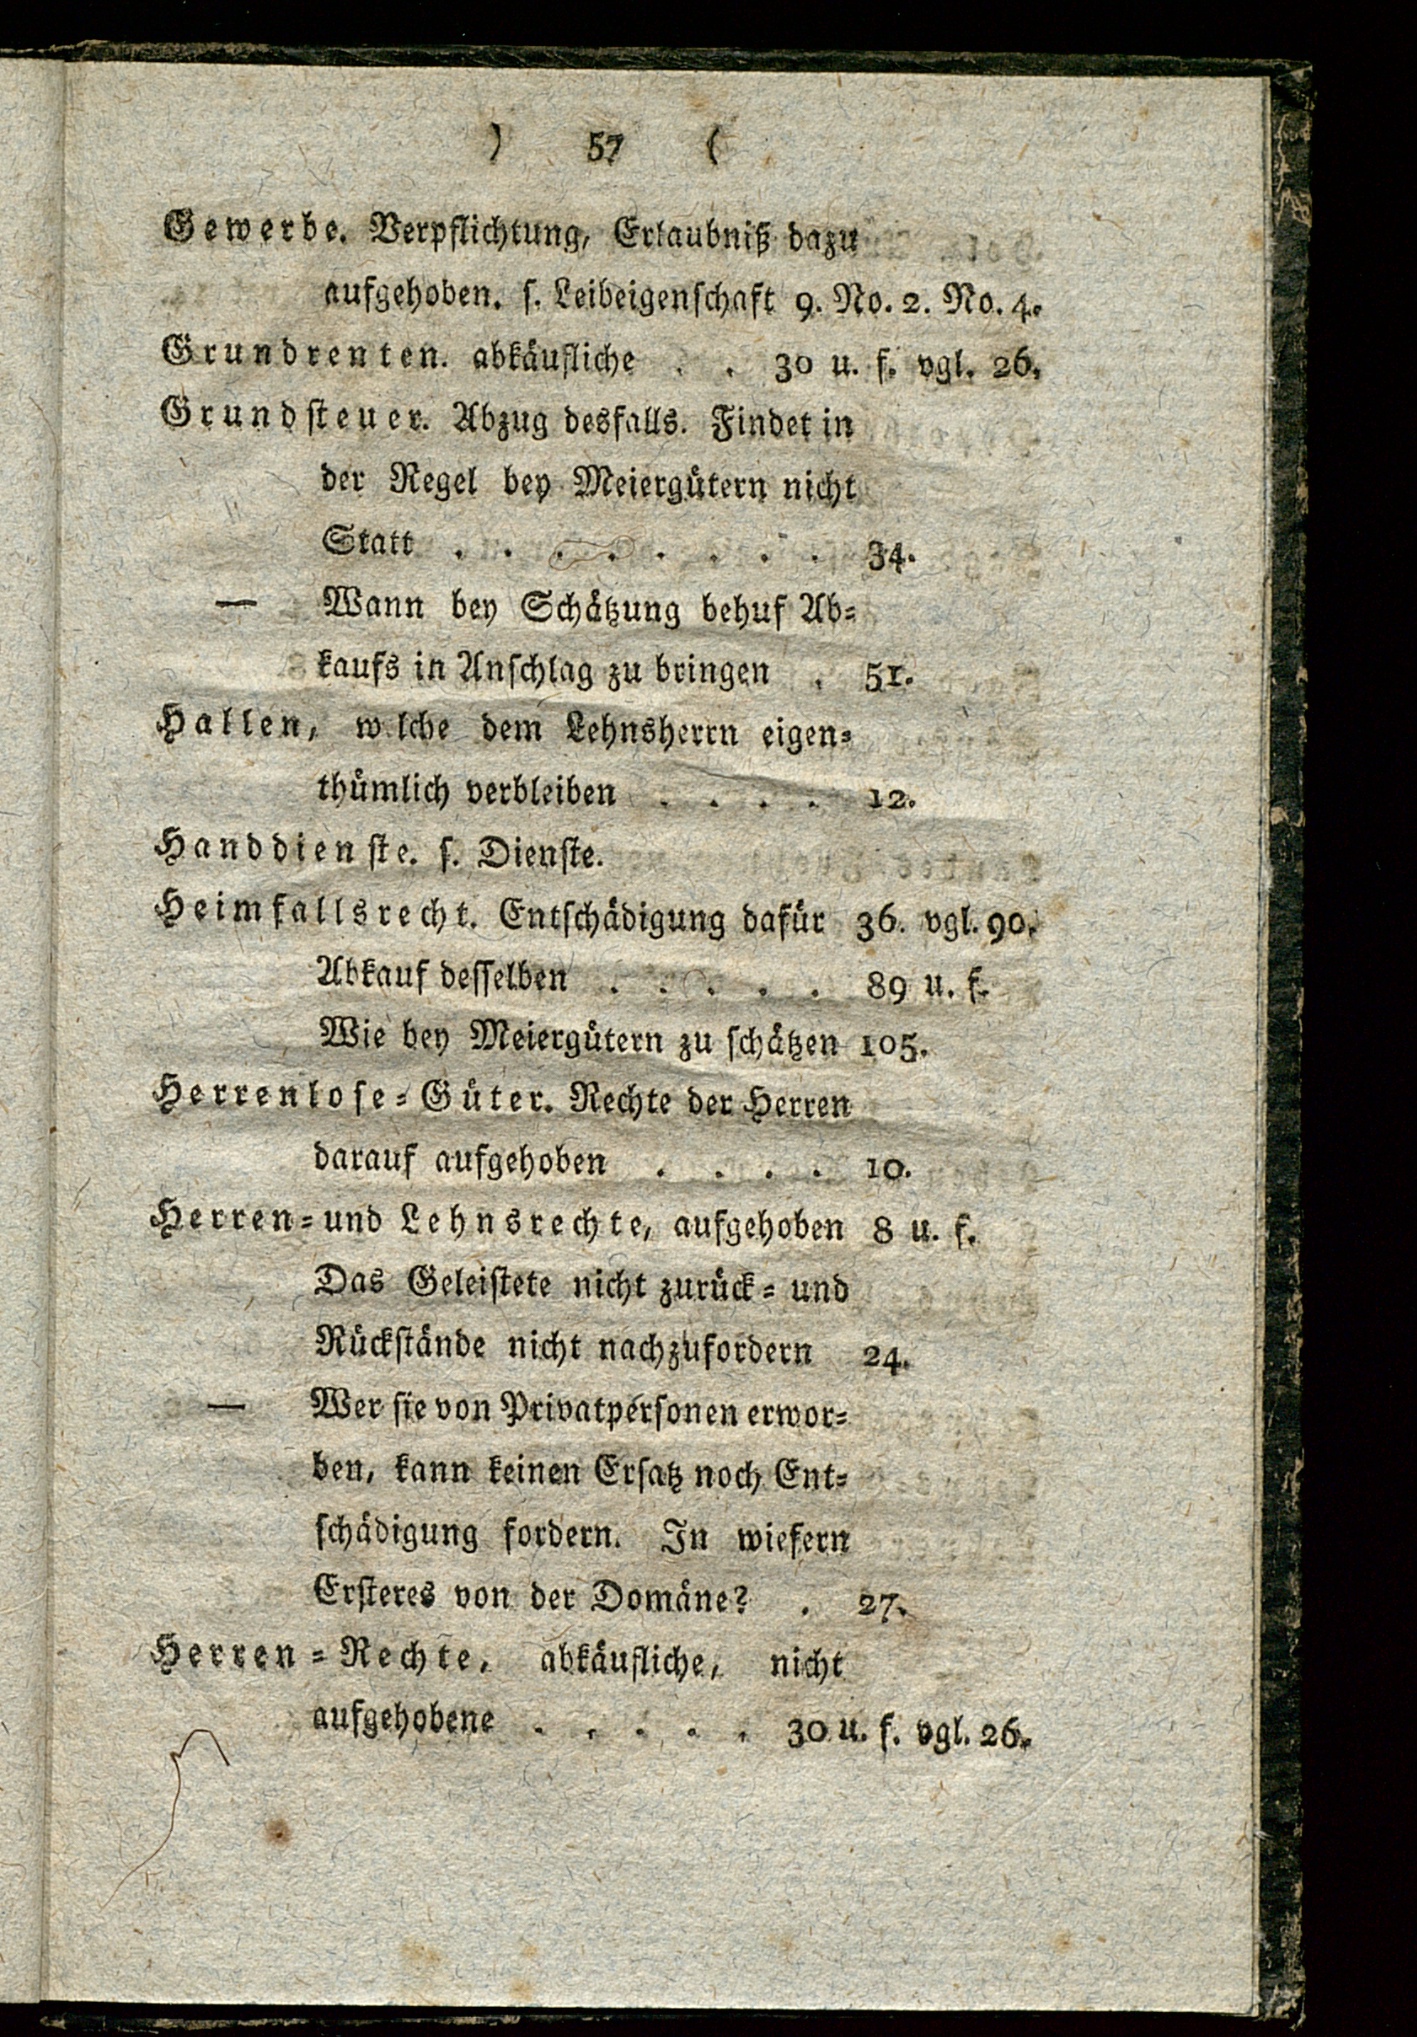 ) 57 (
Gewerbe. Verpflichtung, Erlaubniß dazu
aufgehoben. s. Leibeigenschaft 9. No. 2. No. 4.
Grundrenten. abkäufliche . . 30 u. f. vgl. 26.
Grundsteuer. Abzug desfalls. Findet in
der Regel bey Meiergütern nicht
Statt . . . . . . . . 34.
— Wann bey Schätzung behuf Ab-
kaufs in Anschlag zu bringen . 51.
Hallen, w lche dem Lehnsherrn eigen-
thümlich verbleiben . . . . 12.
Handdienste. s. Dienste.
Heimfallsrecht. Entschädigung dafür 36. vgl. 90.
Abkauf desselben . . . . . 89 u. f.
Wie bey Meiergütern zu schätzen 105.
Herrenlose-Güter. Rechte der Herren
darauf aufgehoben . . . . 10.
Herren- und Lehnsrechte, aufgehoben 8 u. f.
Das Geleistete nicht zurück- und
Rückstände nicht nachzufordern 24.
— Wer sie von Privatpersonen erwor-
ben, kann keinen Ersatz noch Ent-
schädigung fordern. In wiefern
Ersteres von der Domäne? . 27.
Herren-Rechte, abkäufliche, nicht
aufgehobene . . . . . 30 u. f. vgl. 26.